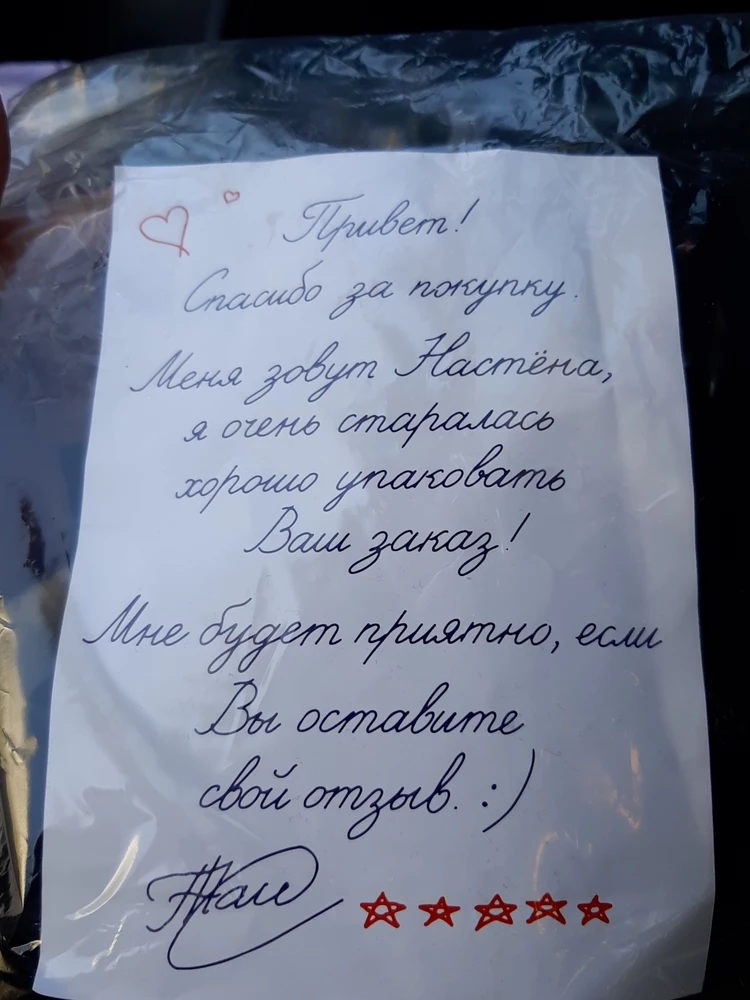 Привет!
Спасибо за покупку.
Меня зовут Настёна,
я очень старалась
хорошо упаковать
Ваш заказ!
Мне будет приятно, если
Вы оставите
свой отзыв. :)